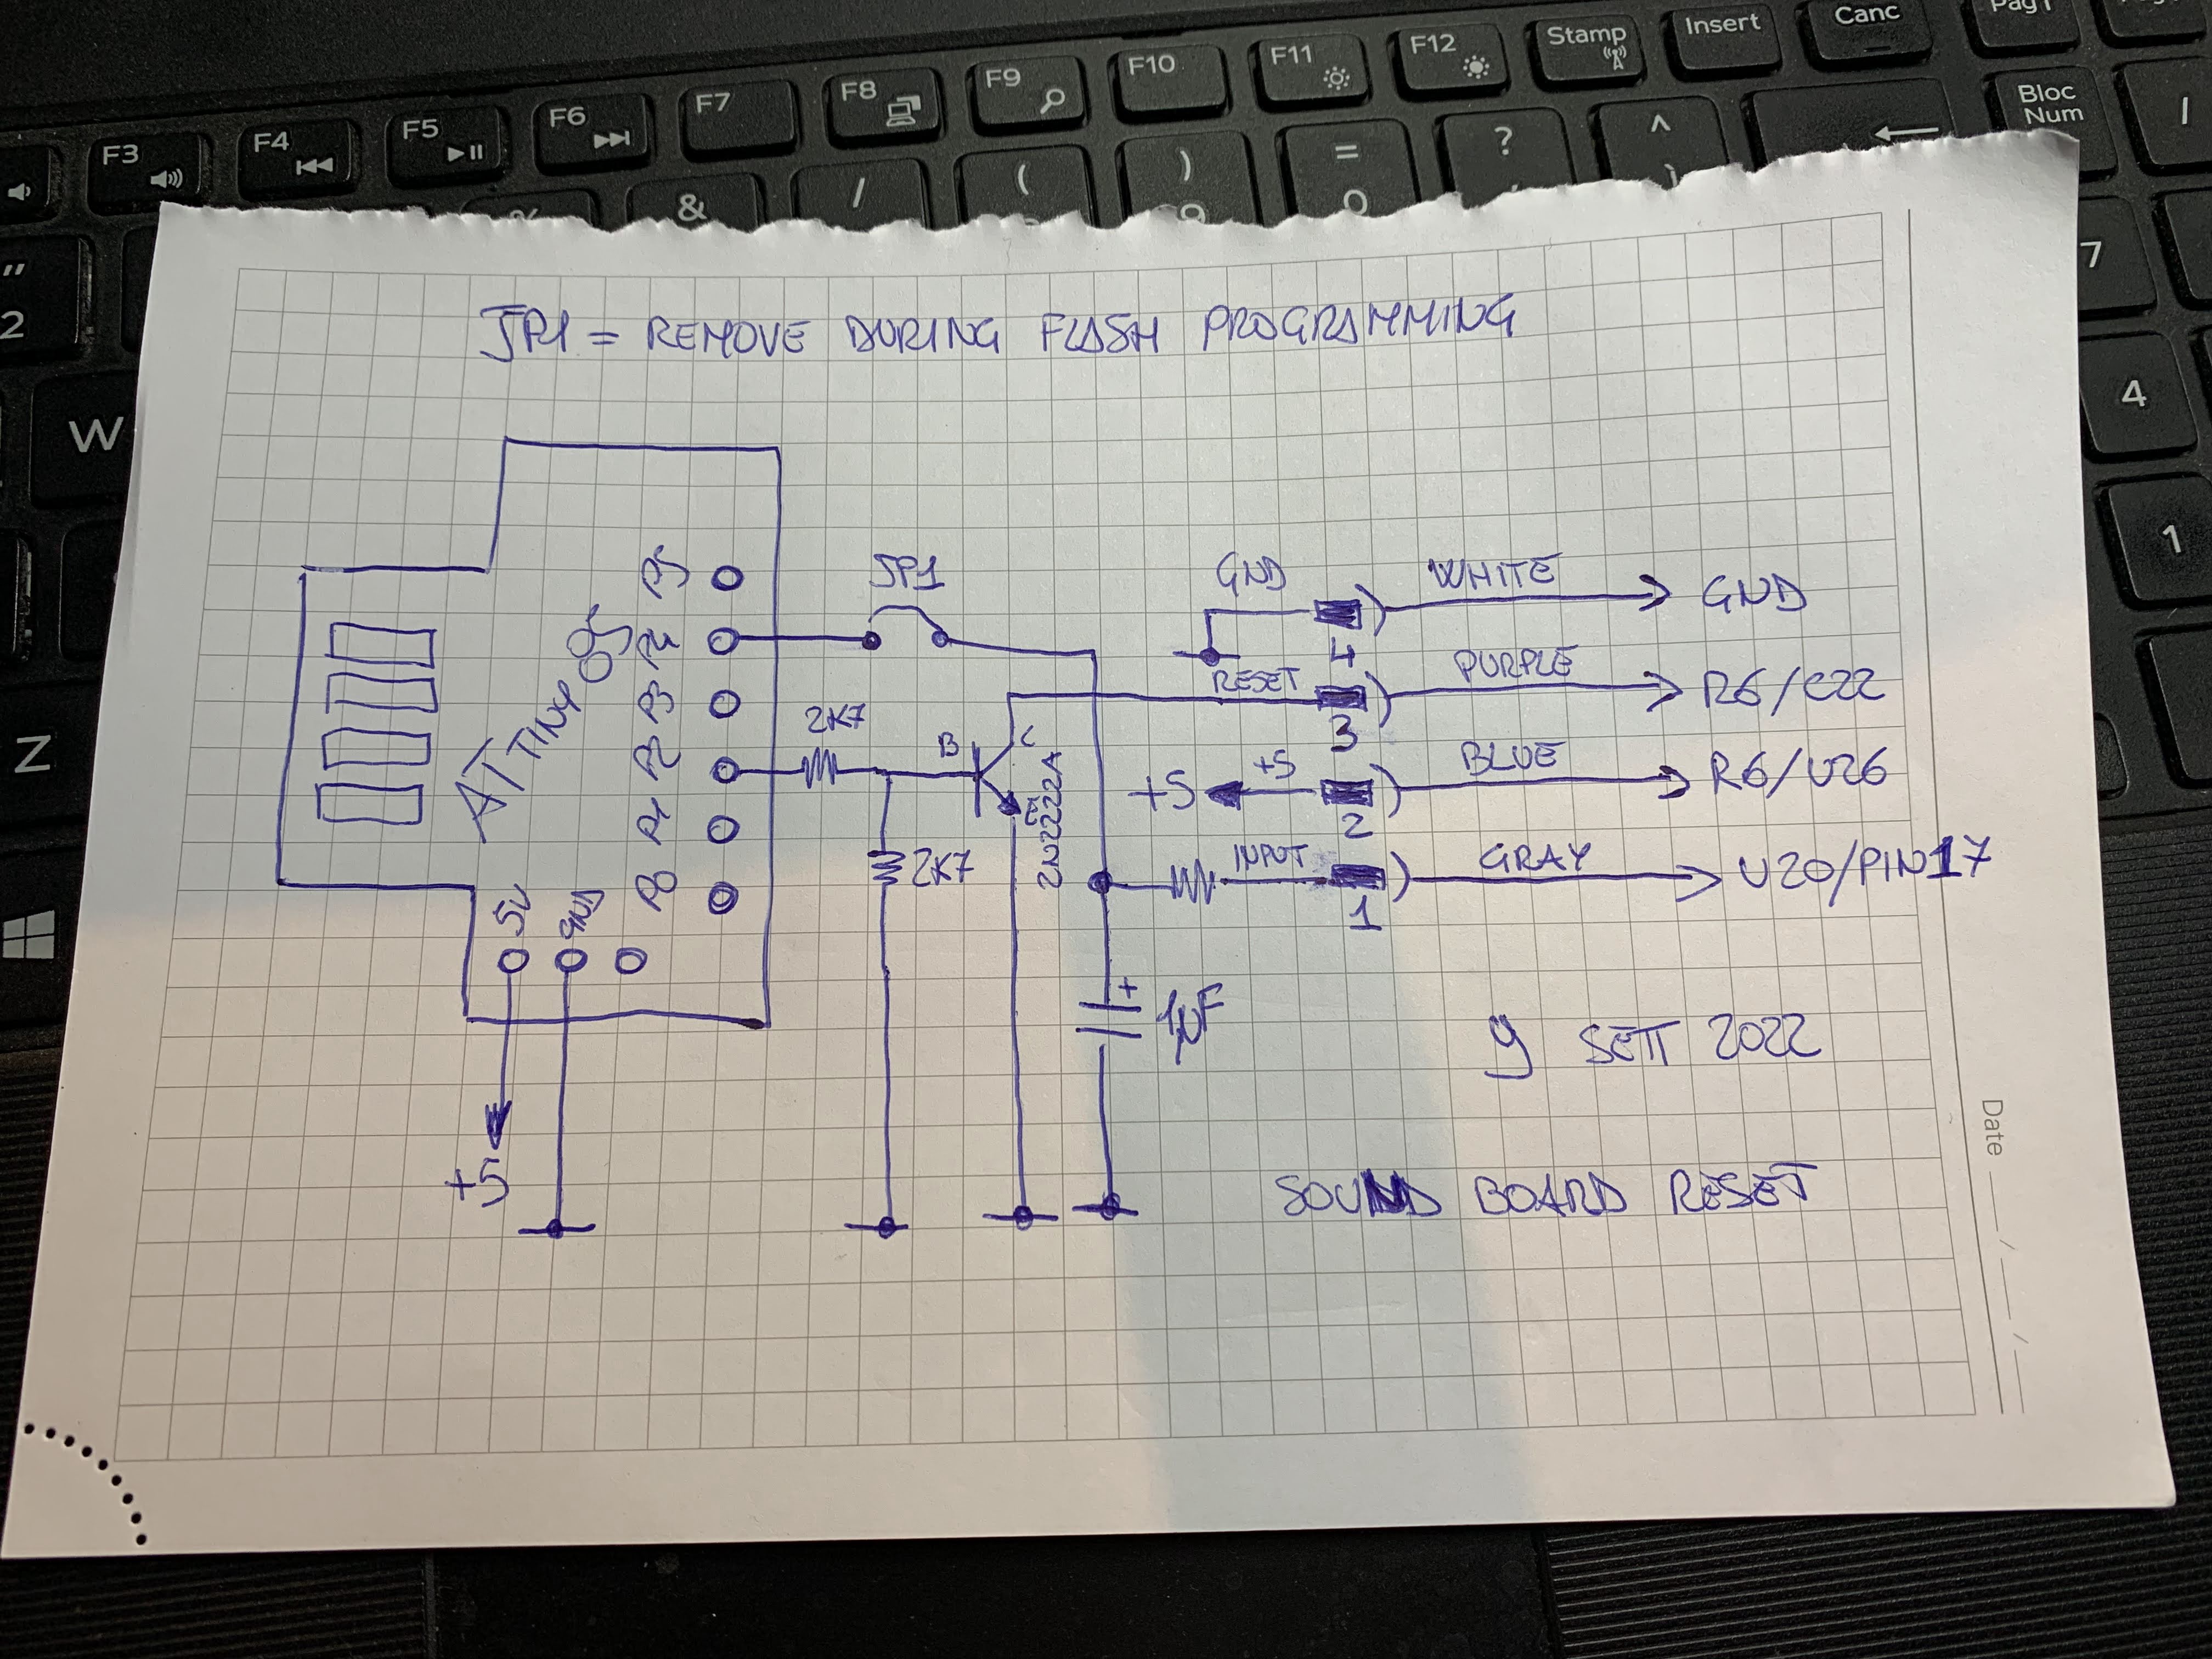 F3
F4
F5
F6
F7
F8
F9
F10
F11
F12
Stamp
Insert
Canc
Bloc
Num
"
2
&
/
(
)
=
0
?
^
7
W
4
Z
1
JP1 = REMOVE DURING FLASH PROGRAMMING
ATTINY 85
P5
P4
P3
P2
P1
P0
5V
GND
+5
JP1
2K7
2K7
B
C
E
2N2222A
GND
4
WHITE
GND
RESET
3
PURPLE
R6/C22
+5
+5
2
BLUE
R6/U26
INPUT
1
GRAY
U20/PIN17
+
1µF
9 SETT 2022
SOUND BOARD RESET
Date